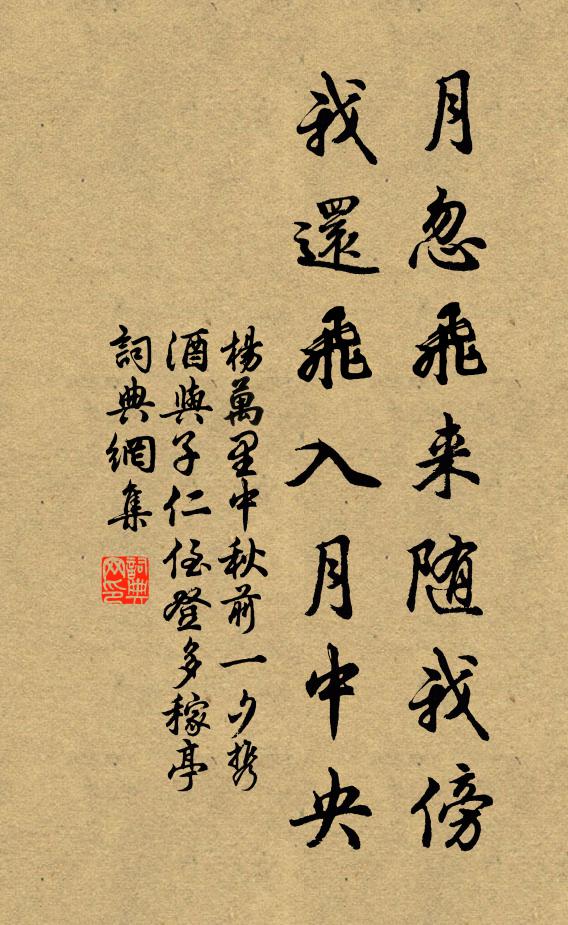 月忽飛来随我傍
我還飛入月中央
楊萬里中秋前一夕携
酒與子仁侄登多稼亭
詞典網集
詞典网印